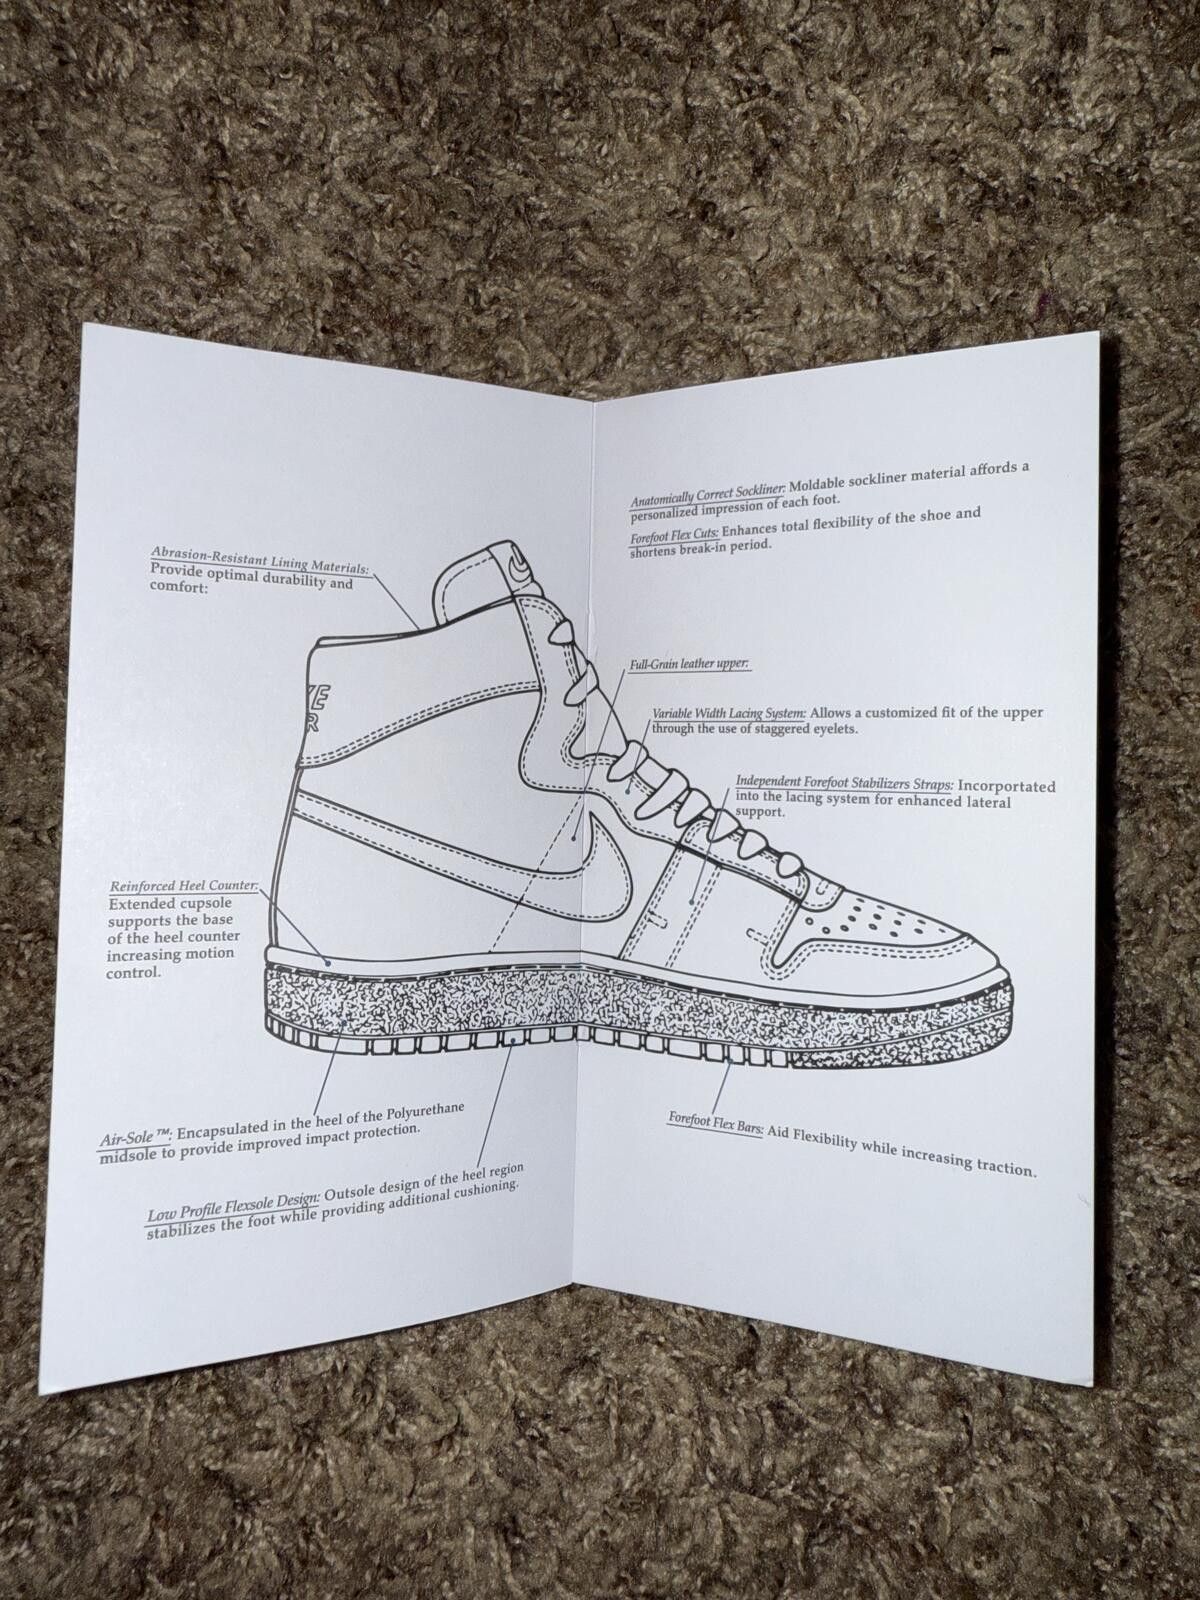 Abrasion-Resistant Lining Materials:
Provide optimal durability and
comfort:
Reinforced Heel Counter:
Extended cupsole
supports the base
of the heel counter
increasing motion
control.
Air-Sole™: Encapsulated in the heel of the Polyurethane
midsole to provide improved impact protection.
Low Profile Flexsole Design: Outsole design of the heel region
stabilizes the foot while providing additional cushioning.
Anatomically Correct Sockliner: Moldable sockliner material affords a
personalized impression of each foot.
Forefoot Flex Cuts: Enhances total flexibility of the shoe and
shortens break-in period.
Full-Grain leather upper:
Variable Width Lacing System: Allows a customized fit of the upper
through the use of staggered eyelets.
Independent Forefoot Stabilizers Straps: Incorportated
into the lacing system for enhanced lateral
support.
Forefoot Flex Bars: Aid Flexibility while increasing traction.